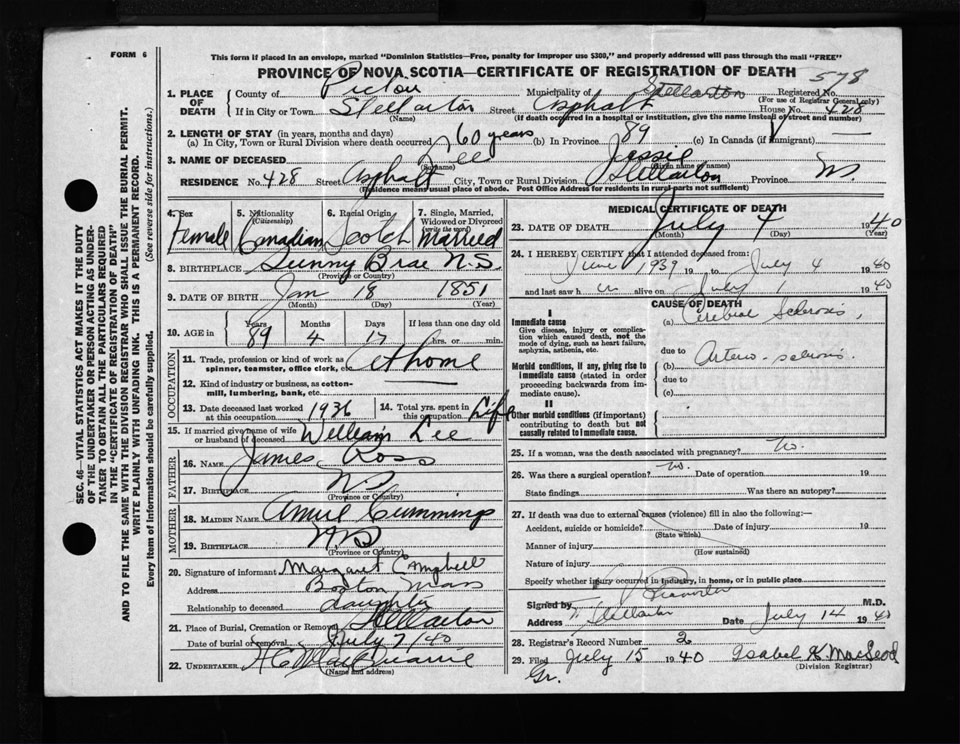 FORM 6
This form if placed in an envelope, marked "Dominion Statistics—Free, penalty for improper use $300," and properly addressed will pass through the mail "FREE"
PROVINCE OF NOVA SCOTIA—CERTIFICATE OF REGISTRATION OF DEATH
578
1. PLACE OF DEATH County of Pictou Municipality of Stellarton Registered No.
(For use of Registrar General only)
If in City or Town Stellarton Street Asphalt House No. 428
(Name) (If death occurred in a hospital or institution, give the name instead of street and number)
2. LENGTH OF STAY (in years, months and days)
(a) In City, Town or Rural Division where death occurred 60 years (b) In Province 89 (c) In Canada (if immigrant)
3. NAME OF DECEASED Lee Jessie
(Surname) (Given name or names)
RESIDENCE No. 428 Street Asphalt City, Town or Rural Division Stellarton Province N.S.
(Residence means usual place of abode. Post Office Address for residents in rural parts not sufficient)
4. Sex Female
5. Nationality (Citizenship) Canadian
6. Racial Origin Scotch
7. Single, Married, Widowed or Divorced (write the word) Married
8. BIRTHPLACE Sunny Brae N.S.
(Province or Country)
9. DATE OF BIRTH Jan 18 1851
(Month) (Day) (Year)
10. AGE in Years Months Days If less than one day old
89 4 17 hrs. or min.
OCCUPATION
11. Trade, profession or kind of work as spinner, teamster, office clerk, etc. At home
12. Kind of industry or business, as cotton-mill, lumbering, bank, etc.
13. Date deceased last worked at this occupation 1936
14. Total yrs. spent in this occupation Life
15. If married give name of wife or husband of deceased William Lee
FATHER
16. NAME James Ross
17. BIRTHPLACE N.S.
(Province or Country)
MOTHER
18. MAIDEN NAME Annie Cummings
19. BIRTHPLACE N.S.
(Province or Country)
20. Signature of informant Margaret Campbell
Address Boston Mass
Relationship to deceased daughter
21. Place of Burial, Cremation or Removal Stellarton
Date of burial or removal July 7/40
22. UNDERTAKER
(Name and address)
MEDICAL CERTIFICATE OF DEATH
23. DATE OF DEATH July 4 1940
(Month) (Day) (Year)
24. I HEREBY CERTIFY that I attended deceased from
June 1939 19 to July 4 1940
and last saw h er alive on July 1 1940
CAUSE OF DEATH
I
Immediate cause
Give disease, injury or complication which caused death, not the mode of dying, such as heart failure, asphyxia, asthenia, etc.
(a) Cerebral Sclerosis,
due to
Morbid conditions, if any, giving rise to immediate cause (stated in order proceeding backwards from immediate cause).
(b) Arterio-sclerosis.
due to
(c)
II
Other morbid conditions (if important) contributing to death but not causally related to immediate cause.
25. If a woman, was the death associated with pregnancy? No.
26. Was there a surgical operation? No. Date of operation 19
State findings Was there an autopsy?
27. If death was due to external causes (violence) fill in also the following:—
Accident, suicide or homicide? Date of injury 19
(State which)
Manner of injury
(How sustained)
Nature of injury
Specify whether injury occurred in industry, in home, or in public place
Signed by M.D.
Address Stellarton Date July 14 1940
28. Registrar's Record Number 2
29. Filed July 15 1940 Isabel K. MacLeod
(Division Registrar)
Gr.
SEC. 46—VITAL STATISTICS ACT MAKES IT THE DUTY
OF THE UNDERTAKER OR PERSON ACTING AS UNDER-
TAKER TO OBTAIN ALL THE PARTICULARS REQUIRED
IN THE "CERTIFICATE OF REGISTRATION OF DEATH"
AND TO FILE THE SAME WITH THE DIVISION REGISTRAR WHO SHALL ISSUE THE BURIAL PERMIT.
WRITE PLAINLY WITH UNFADING INK. THIS IS A PERMANENT RECORD.
Every item of Information should be carefully supplied. (See reverse side for instructions.)